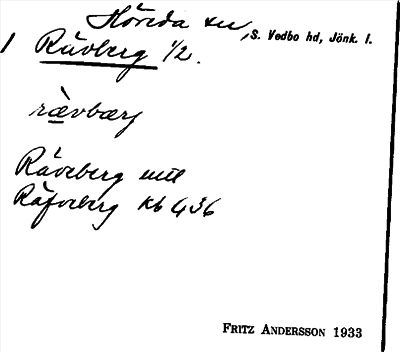 Höreda sn, S. Vedbo hd, Jönk. l.
1 Rävberg 1/2.
rävbærj
Räveberg mtl
Räfveberg kb 436
FRITZ ANDERSSON 1933